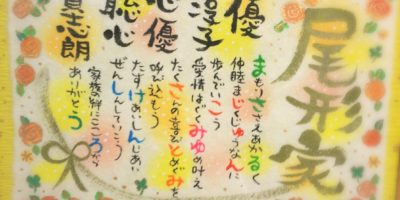 尾形家
優
淳子
心優
聡心
志朗
まもりささえあかるく
仲睦まじくじゅうなんに
歩んでいこう
愛情はぐくみゆめ叶え
たくさんの喜びとめぐみを
呼び込もう
たすけあいしんじあい
ぜんしんしていこう
家族の絆にこころから
ありがとう